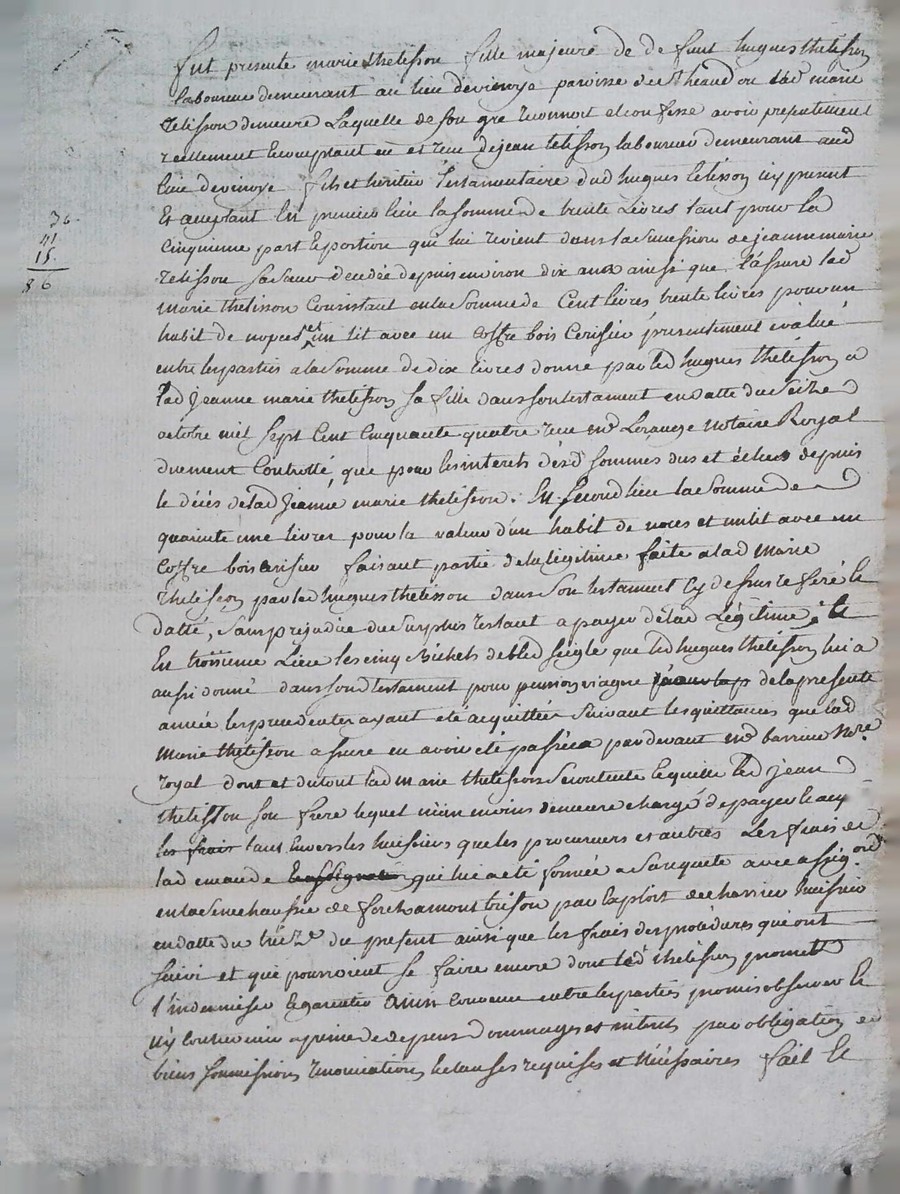 fut presente marie thelisson fille majeure de de funt hugues thelisson
laboureur demeurant au lieu de vinoye paroisse de St heand ou lad marie
telisson demeure Laquelle de son gre reconnoit et confesse avoir presentement
reellement & comptant eu et recu de jean telisson laboureur demeurant aud
lieu de vinoye fils et heritier testamentaire dud hugues telisson icy present
Et acceptant En premier lieu la somme de trente Livres tant pour la
Cinquieme part & portion qui lui revient dans la succession de jeanne marie
telisson sa sœur decedée depuis environ dix ans ainsi que l'assure lad
marie thelisson Consistant en la somme de Cent livres trente livres pour un
habit de nopces et un lit avec un Coffre bois Cerisier presentement evalué
entre les parties a la somme de dix livres donné par led hugues thelisson a
lad jeanne marie thelisson sa fille dans son testament en datte du seize
octobre mil sept Cent Cinquante quatre recu me Notaire Royal
duement Controllé, que pour les interets desd sommes dus et echus depuis
le décés de lad Jeanne marie thelisson. En second lieu la somme de
quarente une livres pour la valeur d'un habit de noces et un lit avec un
Coffre bois cerisier faisant partie de la legitime faite a lad Marie
Thelisson par led hugues thelisson dans son testament Cy dessus referé &
datté, sans prejudice du surplus restant a payer de lad Légitime, &
En troisieme Lieu les cinq Bichets de bled seigle que led hugues thelisson lui a
aussi donné dans sond testament pour pension viagere de la presente
année les precedentes ayant eté acquittées suivant les quittances que lad
Marie thelisson assure en avoir eté passées par devant me Nore
royal dont et du tout lad Marie thelisson se contente & quitte led jean
thelisson son frere lequel neanmoins demeure chargé de payer & acq
les frais tant Envers les huissiers que les procureurs et autres Les frais de
lad demande qui lui a eté formée a sa requete avec assigon
en la senechaussée de par Exploit de charrier huissier
en datte du du present ainsi que les frais des procédures qui ont
suivi et qui pourroient se faire encore dont led thelisson promet
l'indemniser & garentir Ainsi Convenu entre les parties promis observer &
n'y Contrevenir a peine de depens Dommages et interets par obligation de
biens soumissions renonciations & clauses requises et Nécéssaires fait &
36.
41
15.
86